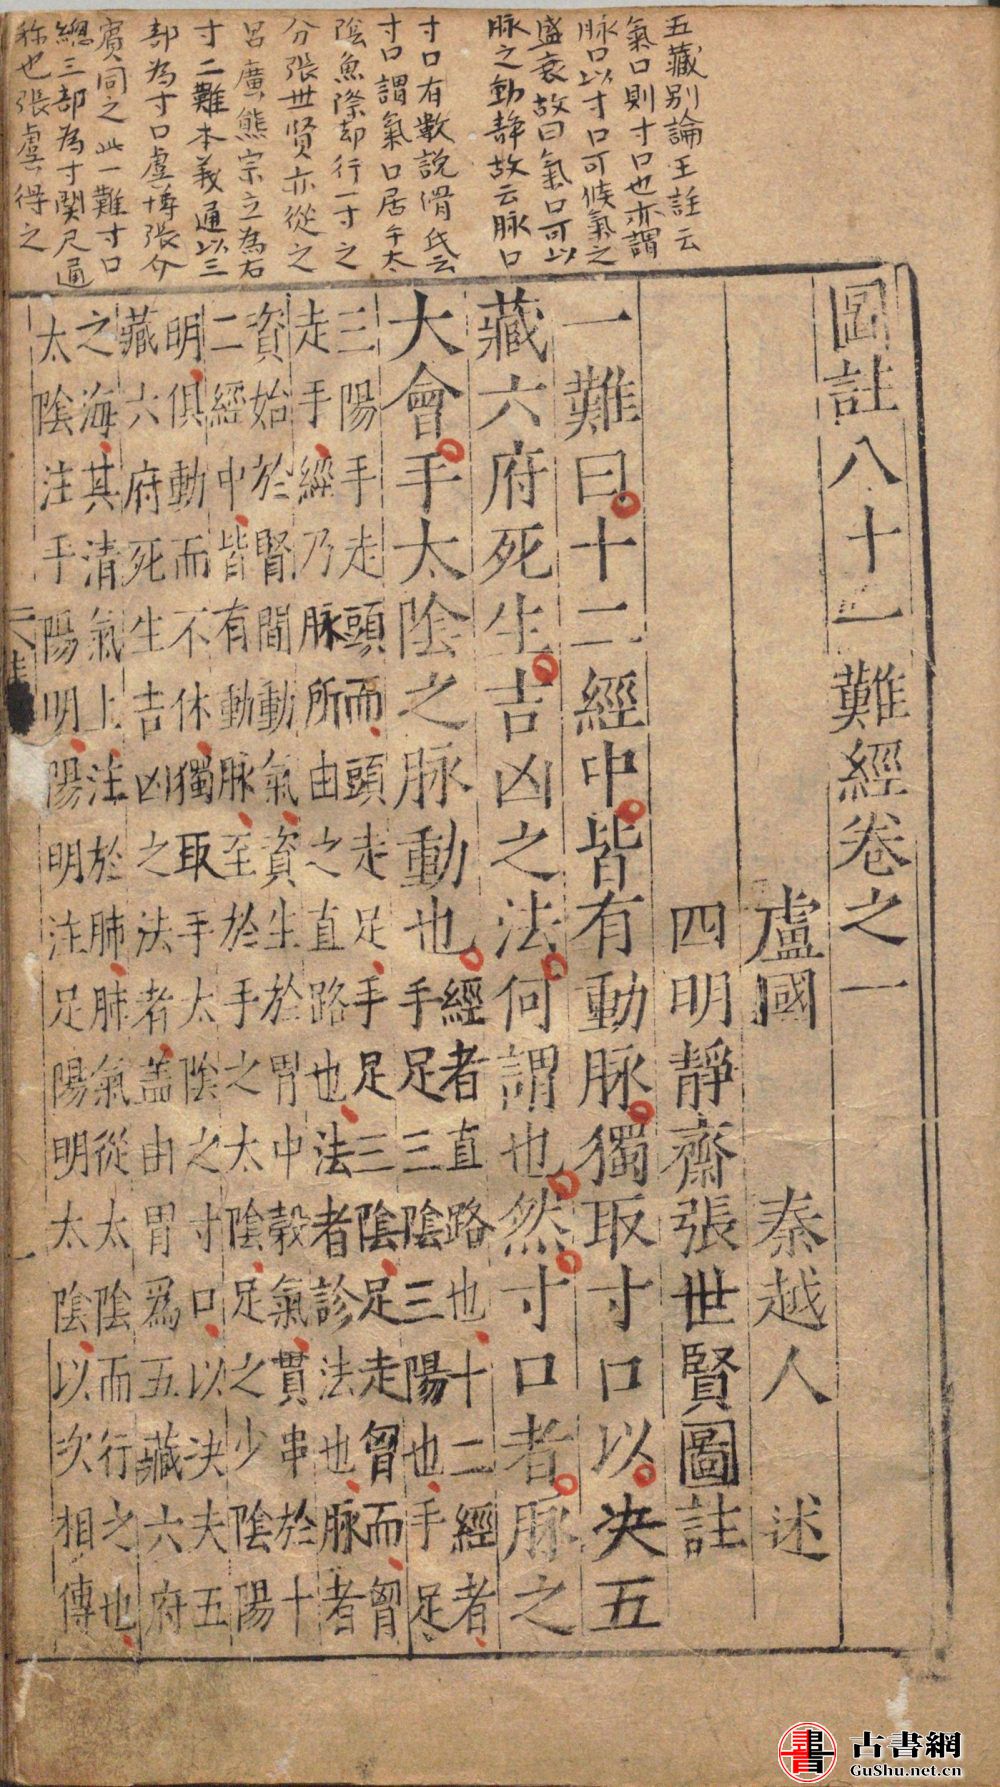 五藏别論王註云
氣口則寸口也亦謂
脉口以寸口可候氣之
盛衰故曰氣口可以
脉之動静故云脉口
寸口有數説滑氏云
寸口謂氣口居手太
陰魚際却行一寸之
分張世贤亦從之
呂廣熊宗立為右
寸二難本義通以三
部為寸口虞博張介
賓同之此一難寸口
總三部為寸関尺通
称也張虞得之
圖註八十一難經卷之一
盧國 秦越人 述
四明靜齋張世賢圖註
一難曰十二經中皆有動脉獨取寸口以决五
藏六府死生吉凶之法何謂也然寸口者脉之
大會手太陰之脉動也
經者直路也十二經者
手足三陰三陽也手足
三陽手走頭而頭走足手足三陰足走胷而胷
走手經乃脉所由之直路也法者診法也脉者
資始於腎間動氣資生於胃中穀氣貫串於十
二經中皆有動脉至於手之太陰足之少陰陽
明俱動而不休獨取手太陰之寸口以决夫五
藏六府死生吉凶之法者盖由胃爲五藏六府
之海其清氣上注於肺肺氣從太陰而行之也
太陰注手陽明陽明注足陽明太陰以次相傳
一
古書網
GuShu.net.cn